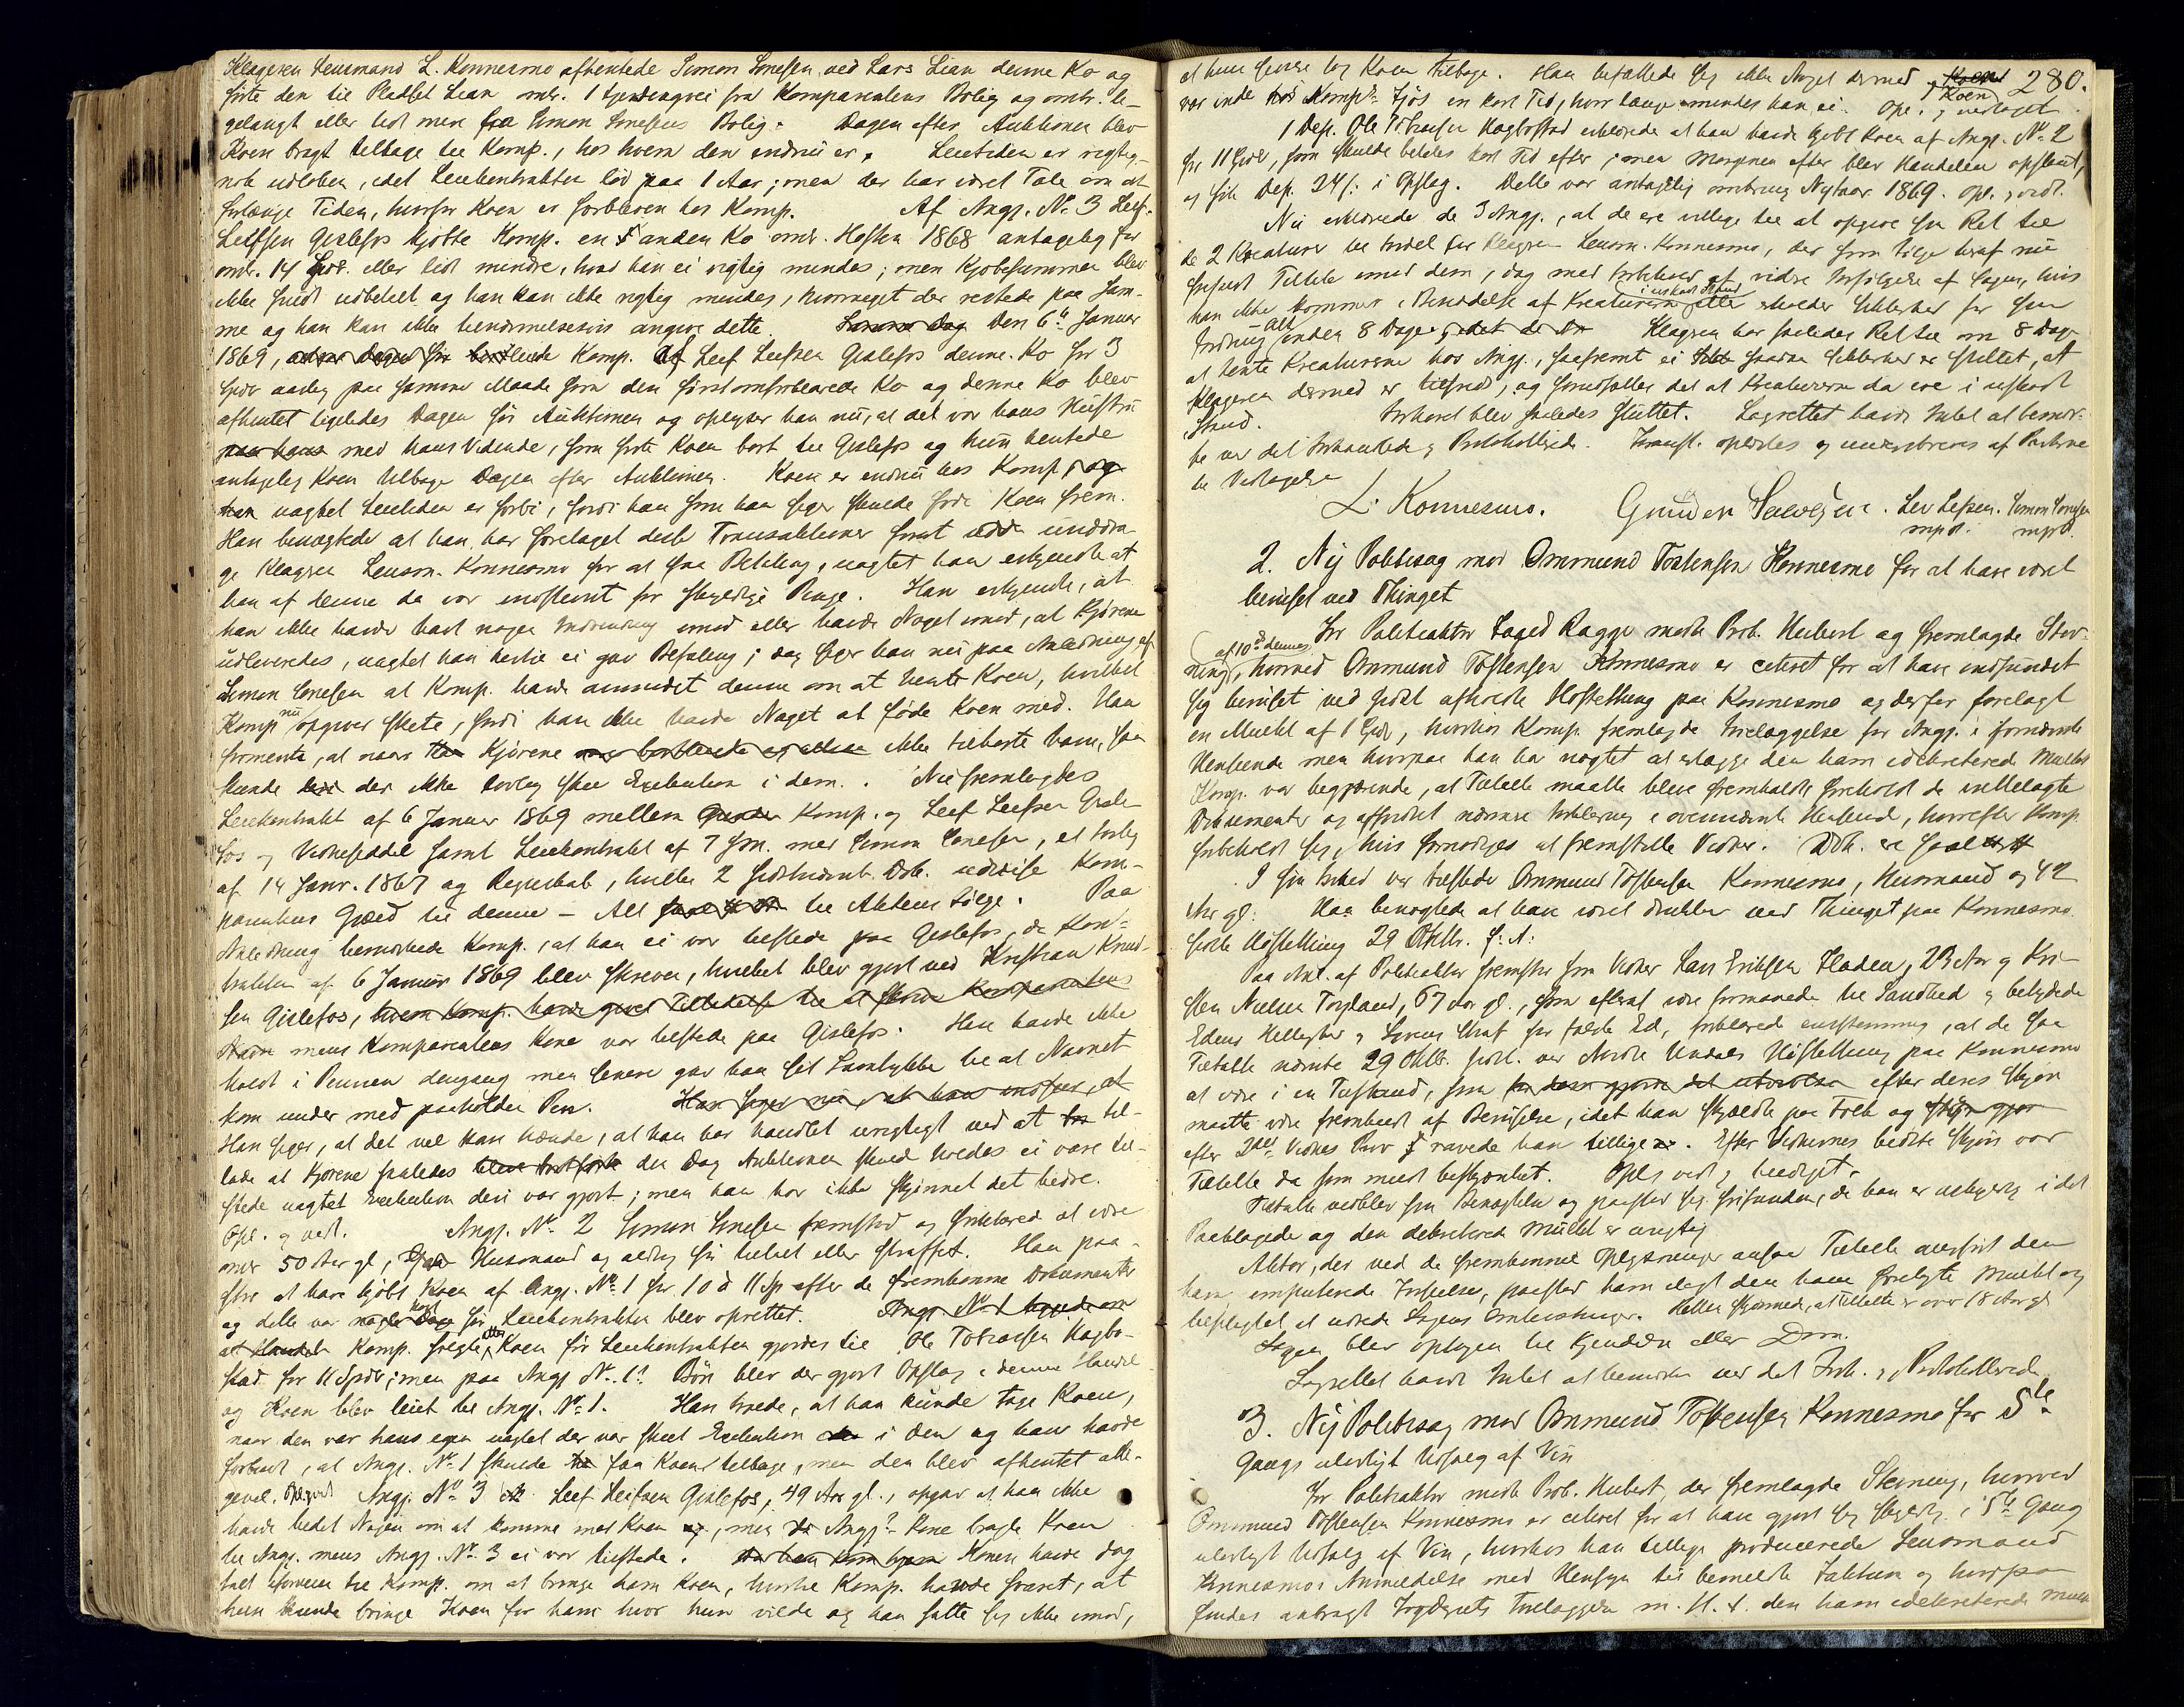 Klageren Lensmand L. Konnesmo afhentede Simon Tønnesen ved Lars Lian denne Ko og
førte den til Pladset Lian omtr. 1 fra Komparentens Bolig og omtr. li-
gelangt eller lidt mere fra Simon Bolig. Dagen efter Auktionen blev
Koen bragt tilbage til Komp., hos hvem den endnu er. Leietiden er rigtig-
nok udløben, idet Leiekontrakten lød paa 1 Aar; men der har været Tale om at
forlænge Tiden, hvorfor Koen er forbleven hos Komp. Af Angj. No 3 Leef
Leefsen Gislefos kjøbte Komp. en anden Ko omtr. Høsten 1868 antagelig for
omtr. 14 Spd. eller lidt mindre, hvad han ei rigtig mindes; men Kjøbesummen blev
ikke fuldt udbetalt og han kan ikke rigtig mindes, hvormeget der restede paa Sam-
me og han kan ikke tilnærmelsesvis angive dette. Samme Dag Den 6te Januar
1869, leiede Komp. af Leef Leefsen Gislefos denne Ko for 3
Spd aarlig paa samme Maade som den førstomforklarede Ko og denne Ko blev
afhentet ligeledes Dagen før Auktionen og oplyser han nu, at det var hans Hustru
paa hans med hans Vidende, som førte Koen bort til Gislefos og hun hentede
antagelig Koen tilbage Dagen efter Auktionen. Koen er endnu hos Komp., og
uagtet Leietiden er forbi, fordi han som han siger skulde føde Koen frem.
Han benægtede at han har foretaget disse Transaktioner for at unddra-
ge Klageren Lensm. Konnesmo for at faa Betaling, uagtet han erkjendte at
han af denne da var indstevnt for skyldige Penge. Han erkjendte, at
han ikke havde havt nogen Indvending imod eller havde Noget imod, at Kjørene
udleveredes, uagtet han hertil ei gav Befaling; dog siger han nu paa Anledning af
Simon at Komp. havde anmodet denne om at hente Koen, hvilket
Komp nu opgiver skete, fordi han ikke havde Noget at føde Koen med. Han
formente, at naar Kjørene ikke tilhørte ham, saa
kunde der ikke lovlig skee Exekution i dem. Nu fremlagdes
Leiekontrakt af 6 Januar 1869 mellem Komp. og Leef Leefsen Gisle-
fos og Vedkesseddel samt Leiekontrakt af 7 med Simon
af 14 Janr. 1867 og Regnskab, hvilke 2 sidstnævnte Dok. udvise Kom-
parentens Gjæld til denne – Alt til Aktens Følge. Paa
Anledning bemærkede Komp., at han ei var tilstede paa Gislefos, da Kon-
trakten af 6 Januar 1869 blev skreven, hvilket blev gjort ved Kristian Knud-
sen Gislefos, hvem Komp. havde givet Tilladelse til at skrive Komparentens
Navn mens Komparentens Kone var tilstede paa Gislefos. Han havde ikke
holdt i Pennen dengang men senere gav han sit Samtykke til at Navnet
kom under med paaholden Pen. Han siger nu, at han indseer, at
Han siger, at det vel kan hænde, at han har handlet urigtigt ved at til-
lade at Kjørene saaledes blev bortførte den Dag Auktionen skulde holdes ei være til-
stede uagtet Exekution deri var gjort; men han har ikke skjønnet det bedre.
Opl. og vedt. Angj. No 2 Simon fremstod og forklarede at være
omtr 50 Aar gl., Husmand og aldrig før tiltalt eller straffet. Han paa-
stod at have kjøbt Koen af Angj. No 1 for 10 à 11 Sp efter de fremkomne Dokumenter
og dette var nogle Dage kort før Leiekontrakten blev oprettet. Angj. No 1
at Handel Komp. solgte atter Koen før Leiekontrakten gjordes til Ole Tobiassen Hagbo-
stad for 11 Spdr; men paa Angj No 1s Bøn blev der gjort Opslag i denne Handel
og Koen blev leiet til Angj. No 1. Han troede, at han kunde tage Koen,
naar den var hans egen uagtet der var skeet Exekution i den og han havde
forbudt, at Angj. No 1 skulde faa Koen tilbage, men den blev afhentet alli-
gevel. Opl. vedt Angj. No 3 Leef Leefsen Gislefos, 49 Aar gl., opgav at han ikke
havde bedet Nogen om at komme med Koen, men Angj.s Kone bragte Koen
til Angj. mens Angj. No 3 ei var tilstede. Konen havde dog
talt iforveien til Komp. om at bringe ham Koen, hvortil Komp. havde svaret, at
hun kunde bringe Koen for ham hvor hun vilde og han satte sig ikke imod,
280.
at hun senere tog Koen tilbage. Han befattede sig ikke Noget dermed Koen
var inde hos Komp.s Fjøs en kort Tid, hvor længe mindes han ei. Opl. og vedtaget
1 Dep. Ole Tobiassen Hagbostad erklærede at han havde kjøbt Koen af Angj. No 2
for 11 Spdr, som skulde betales kort Tid efter; men Morgenen efter blev Handelen opslaaet,
og fik Dep. 24 s. i Opslag. Dette var antagelig omkring Nytaar 1869. Opl., vedt.
Nu erklærede de 3 Angj., at de ere villige til at opgive sin Ret til
de 2 Kreaturer til Fordel for Klageren Lensm. Konnesmo, der som Følge heraf nu
frafaldt Tiltale imod dem, dog med Forbehold af videre Forfølgelse af Sagen, hvis
han ikke kommer i Besiddelse af Kreaturerne i uskadt Stand eller erholder Sikkerhed for sin
Fordring Alt inden 8 Dage. Klageren har saaledes Ret til om 8 Dage
at hente Kreaturerne hos Angj., saafremt ei saadan Sikkerhed er stillet, at
Klageren dermed er tilfreds, og forudsættes det at Kreaturerne da ere i uskadt
Stand. Forhøret blev saaledes sluttet. Lagrettet havde Intet at bemær-
ke ved det Forhandlede og Protokollerede. Forligt. oplæstes og underskreves af Parterne
til Vedtagelse
L. Konnesmo. Gunder Salvesen. Lev Lefsen. Simon
mpd. mpd.
2. Ny Politisag mod Ommund Tostensen Konnesmo for at have været
beruset ved Thinget
For Politiaktor Foged Ragge mødte Prok. Hubert og fremlagde Stev-
ning af 10de dennes, hvorved Ommund Tostensen Konnesmo er citeret for at have indfundet
sig beruset ved sidst afholdte Høstething paa Konnesmo og derfor forelagt
en Mulkt af 1 Spdr, hvorhos Komp. fremlagde Forelæggelse for Angj. i fornævnte
Henseende men hvorpaa han har nægtet at erlægge den ham idikterede Mulkt
Komp. var begjærende, at Tiltalte maatte blive fremkaldt foreholdt de indlagte
Dokumenter og affordret nærmere Forklaring i ovennævnte Henseende, hvorefter Komp.
forbeholdt sig, hvis fornødiges at fremstille Vidner. Dok. er saal.
I sin Forhed var tilstede Ommund Tostensen Konnesmo, Husmand og 42
Aar gl. Han benægtede at have været drukken ved Thinget paa Konnesmo
sidste Høstething 29 Oktbr. f. A.
Paa Anl. af Politiaktor fremstod som Vidner Lars Eriksen Fladen, 23 Aar og Kri-
sten Nielsen Trysland, 67 Aar gl., som efterat være formanede til Sandhed og betydede
Edens Hellighed og Lovens Straf for falsk Ed, forklarede enstemmig, at de saa
Tiltalte nævnte 29 Oktbr. sidstl. ved Nordre Undals Høstething paa Konnesmo
at være i en Tilstand, som efter deres Skjøn
maatte være frembragt af Beruselse, idet han skjældte paa Folk og
efter 2det Vidnes Prov ravede han tillige. Efter Vidnernes bedste Skjøn var
Tiltalte da som mest beskjænket. Opl. vedt. beediget.
Tiltalte vedblev sin Benægtelse og paastod sig frifunden, da han er uskyldig i det
Paaklagede og den dekreterede Mulkt er urigtig
Aktor, der ved de fremkomne Oplysninger ansaa Tiltalte overført den
ham imputerede Forseelse, paastod ham ilagt den ham forelagte Mulkt og
tilpligtet at udrede Sagens Omkostninger. Retten skjønnede, at Tiltalte er over 18 Aar gl
Sagen blev optagen til Kjendelse eller Dom.
Lagrettet havde Intet at bemærke ved det Forh. og Protokollerede
3. Ny Politisag mod Ommund Tostensen Konnesmo for 5te
Gangs ulovligt Udsalg af Vin
For Politiaktor mødte Prok. Hubert, der fremlagde Stevning, hvorved
Ommund Tostensen Konnesmo er citeret for at have gjort sig skyldig i 5te Gang
ulovligt Udsalg af Vin, hvorhos han tillige producerede Lensmand
Konnesmos Anmeldelse med Hensyn til bemeldte Faktum og hvorpaa
findes anbragt Fogderiets Forelæggelse m. H. t. den ham idikterede Mulkt